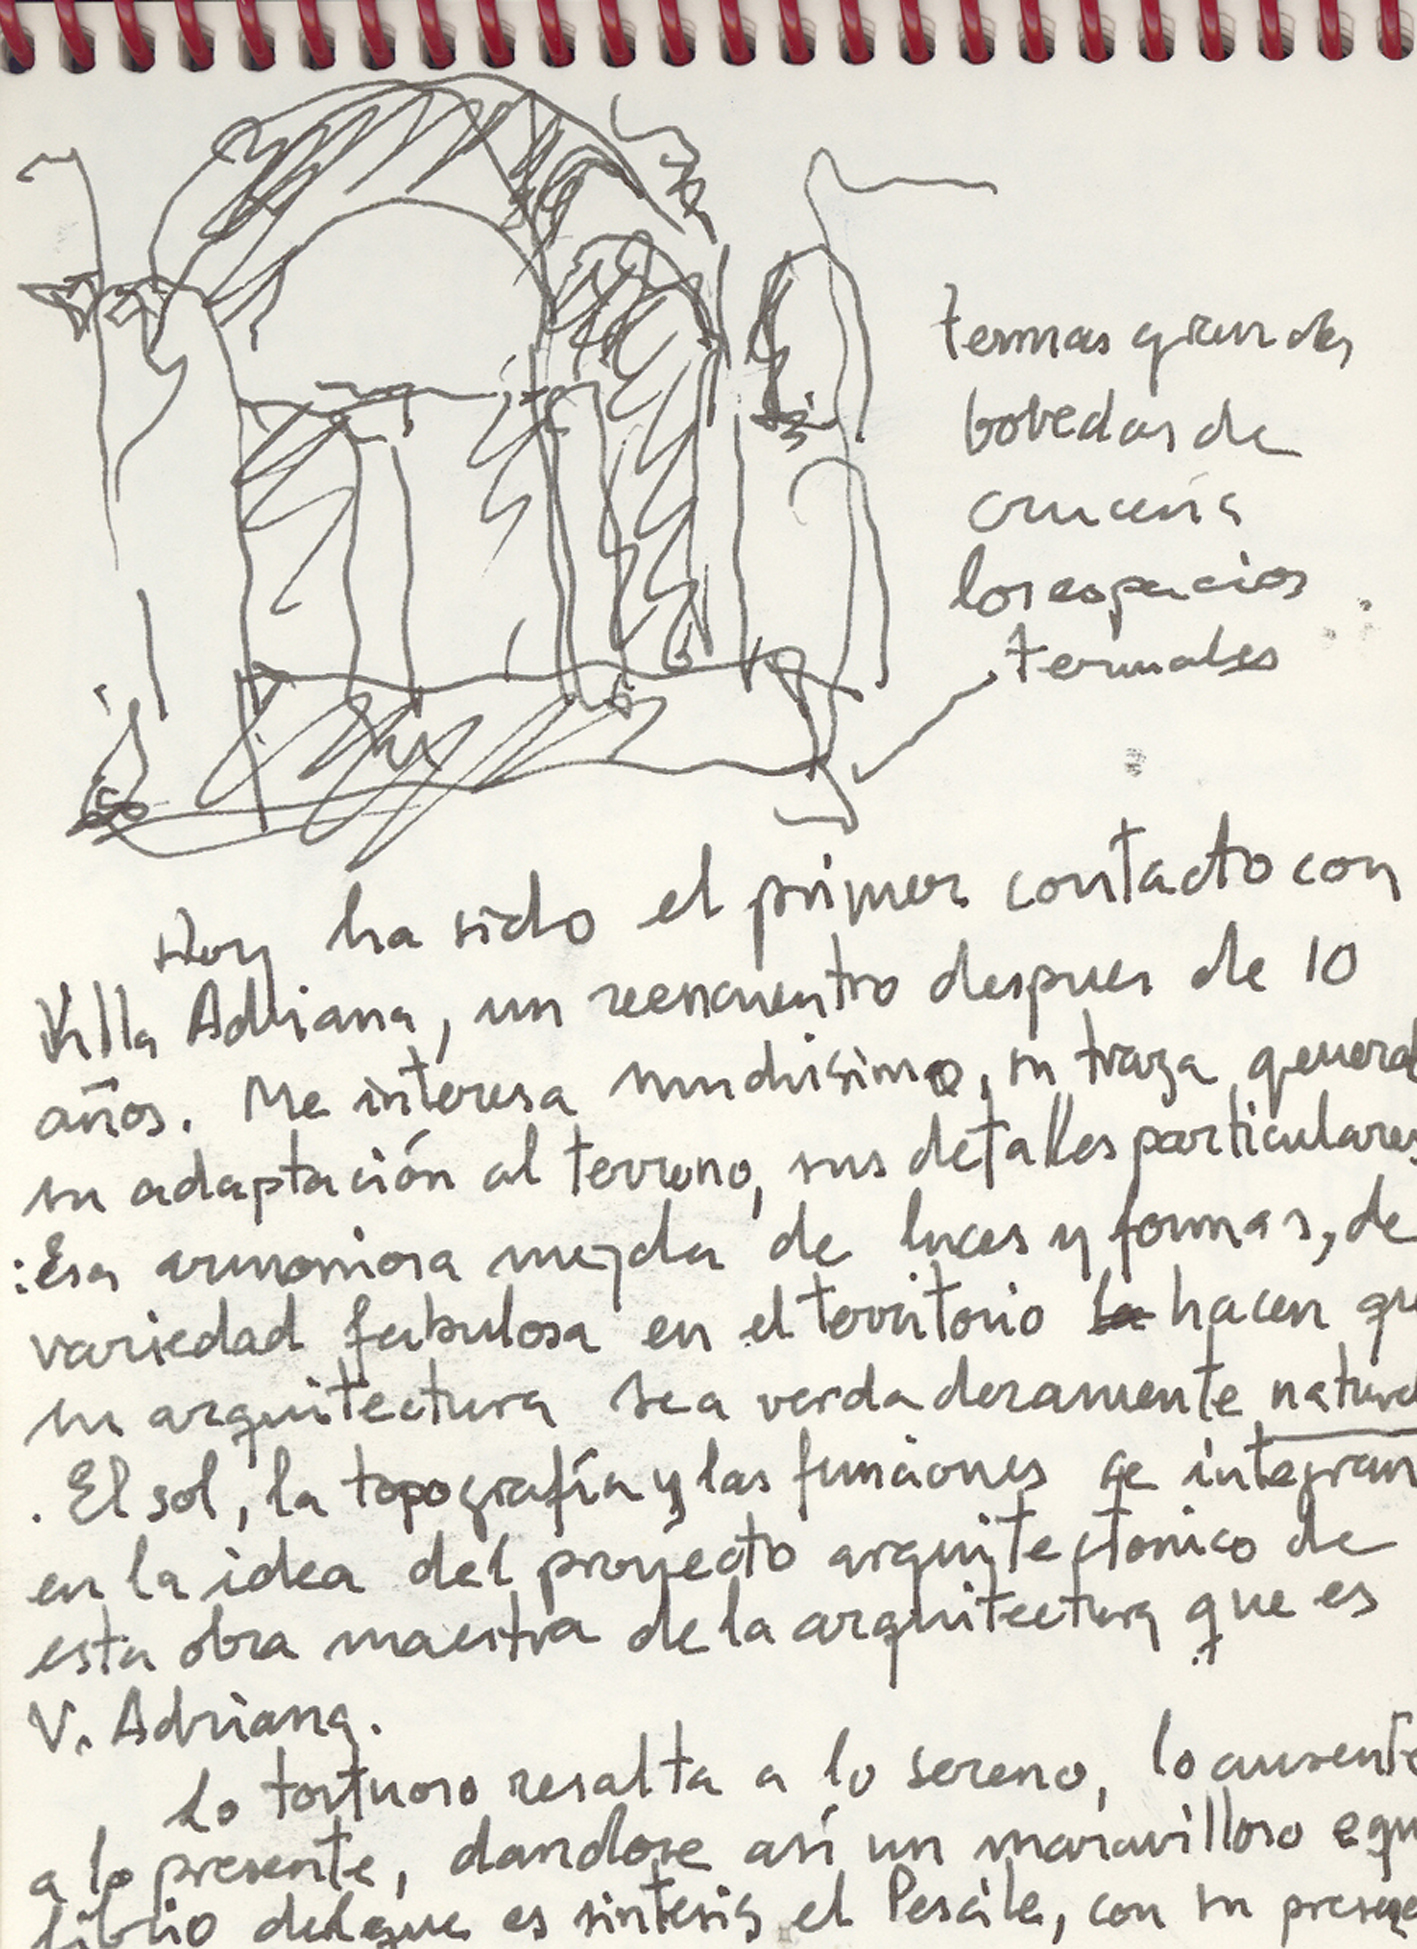 termas grandes
bovedas de
cruceria
los espacios
termales
Hoy ha sido el primer contacto con
Villa Adriana, un reencuentro despues de 10
años. Me interesa muchisimo, su traza general
su adaptación al terreno, sus detalles particulares
: Esa armoniosa mezcla de luces y formas, de
variedad fabulosa en el territorio la hacen qu
su arquitectura sea verdaderamente natural
. El sol, la topografía y las funciones se integran
en la idea del proyecto arquitectonico de
esta obra maestra de la arquitectura que es
V. Adriana.
Lo tortuoso resalta a lo sereno, lo ausente
a lo presente, dandose así un maravilloso equi
librio del que es sintesis el Pescile, con su prese